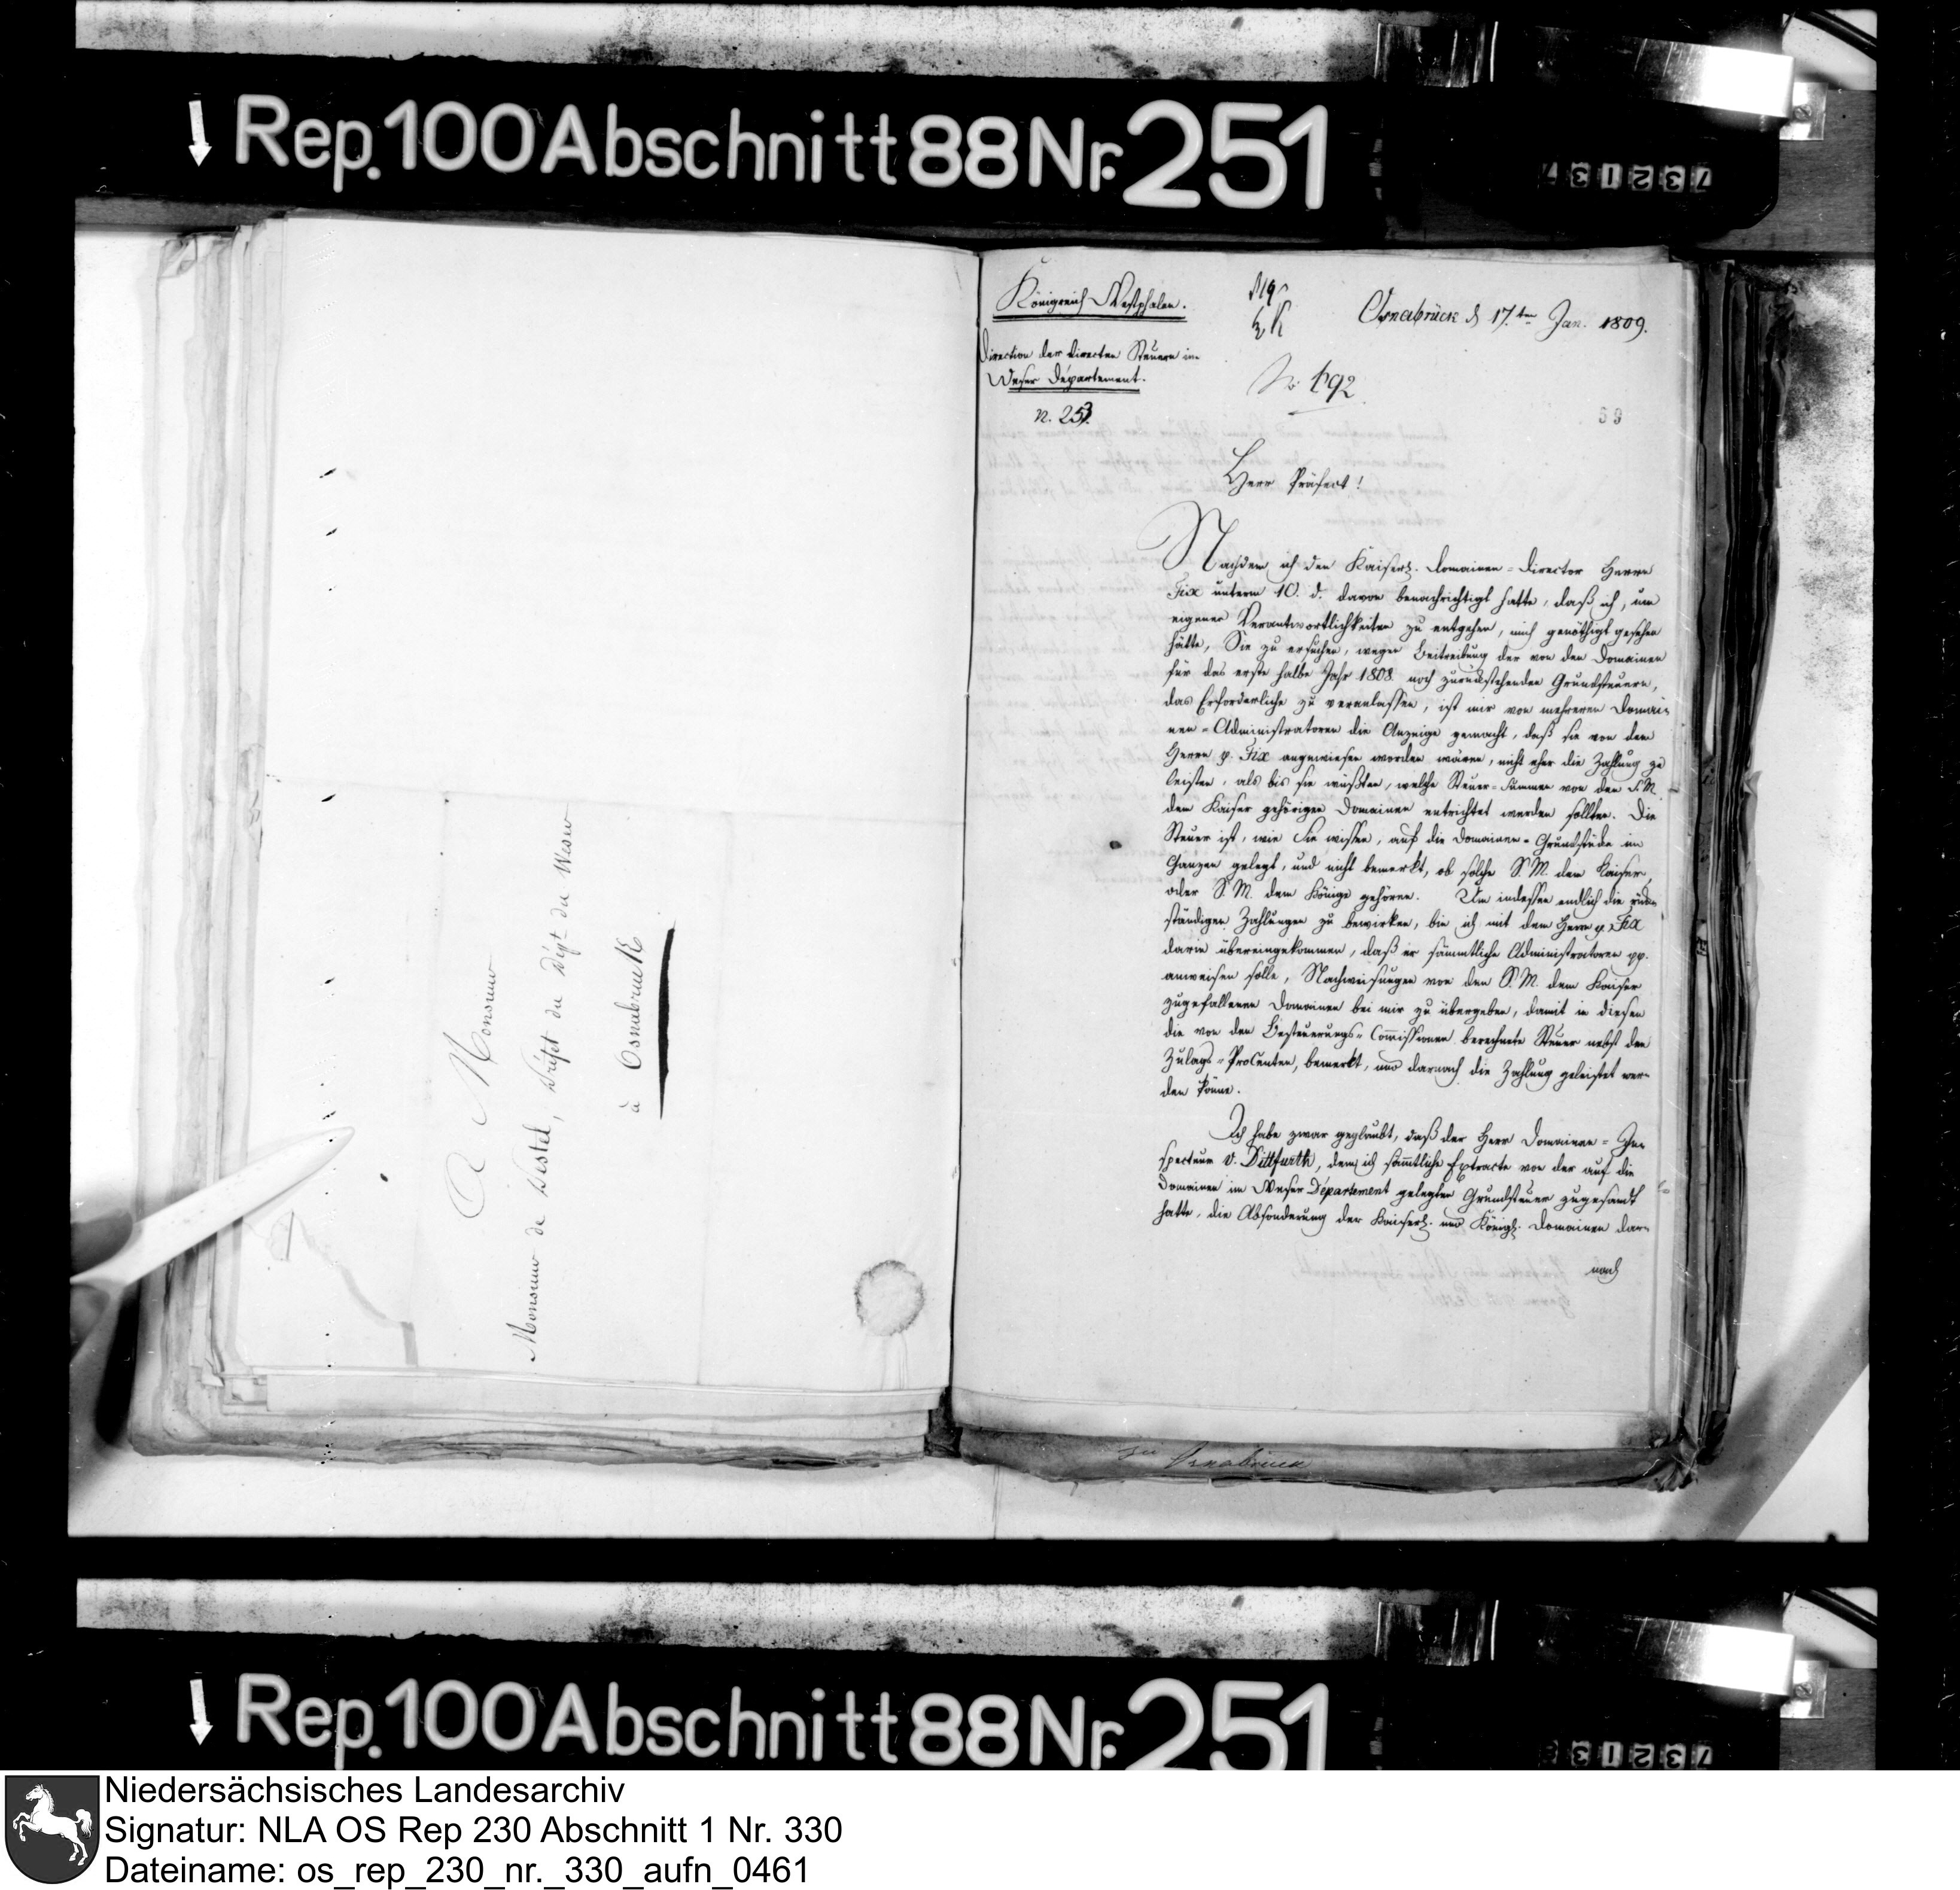 Rep. 100 Abschnitt 88 Nr. 251
A Monsieur
Monsieur de Pestel, Préfet du Dépt. du Weser
à Osnabruck
Königreich Westphalen.
Direction der directen Steuern im
Weser Département.
n. 253.
Osnabrück d 17.ten Jan. 1809.
No 192
59
Herr Präfect!
Nachdem ich den Kaiserl. Domainen-Director Herrn
Fix unterm 10. d. davon benachrichtigt hatte, daß ich, um
eigener Verantwortlichkeiten zu entgehen, mich genöthigt gesehen
hätte, Sie zu ersuchen, wegen Beitreibung der von den Domainen
für das erste halbe Jahr 1808 noch zurückstehenden Grundsteuern,
das Erforderliche zu veranlassen, ist mir von mehreren Domai-
nen-Administratoren die Anzeige gemacht, daß sie von dem
Herrn p. Fix angewiesen worden wären, nicht eher die Zahlung zu
leisten, als bis sie wüßten, welche Steuer-Summen von den S.M.
dem Kaiser gehörigen Domainen entrichtet werden sollten. Die
Steuer ist, wie Sie wissen, auf die Domainen-Grundstücke im
Ganzen gelegt, und nicht bemerkt, ob solche S.M. dem Kaiser,
oder S.M. dem Könige gehören. Um indessen endlich die rück-
ständigen Zahlungen zu bewirken, bin ich mit dem Herrn p. Fix
darin übereingekommen, daß er sämmtliche Administratoren pp.
anweisen solle, Nachweisungen von den S.M. dem Kaiser
zugefallenen Domainen bei mir zu übergeben, damit in diesen
die von den Besteuerungs-Commissionen berechnete Steuer nebst den
Zulags-Procenten, bemerkt, und darnach die Zahlung geleistet wer-
den könne.
Ich habe zwar geglaubt, daß der Herr Domainen-In-
specteur v. Dittfurth, dem ich sämtliche Extracte von der auf die
Domainen im Weser Département gelegten Grundsteuer zugesandt
hatte, die Absonderung der Kaiserl. und Königl. Domainen dar-
nach
zu Osnabrück
Rep. 100 Abschnitt 88 Nr. 251
Niedersächsisches Landesarchiv
Signatur: NLA OS Rep 230 Abschnitt 1 Nr. 330
Dateiname: os_rep_230_nr._330_aufn_0461